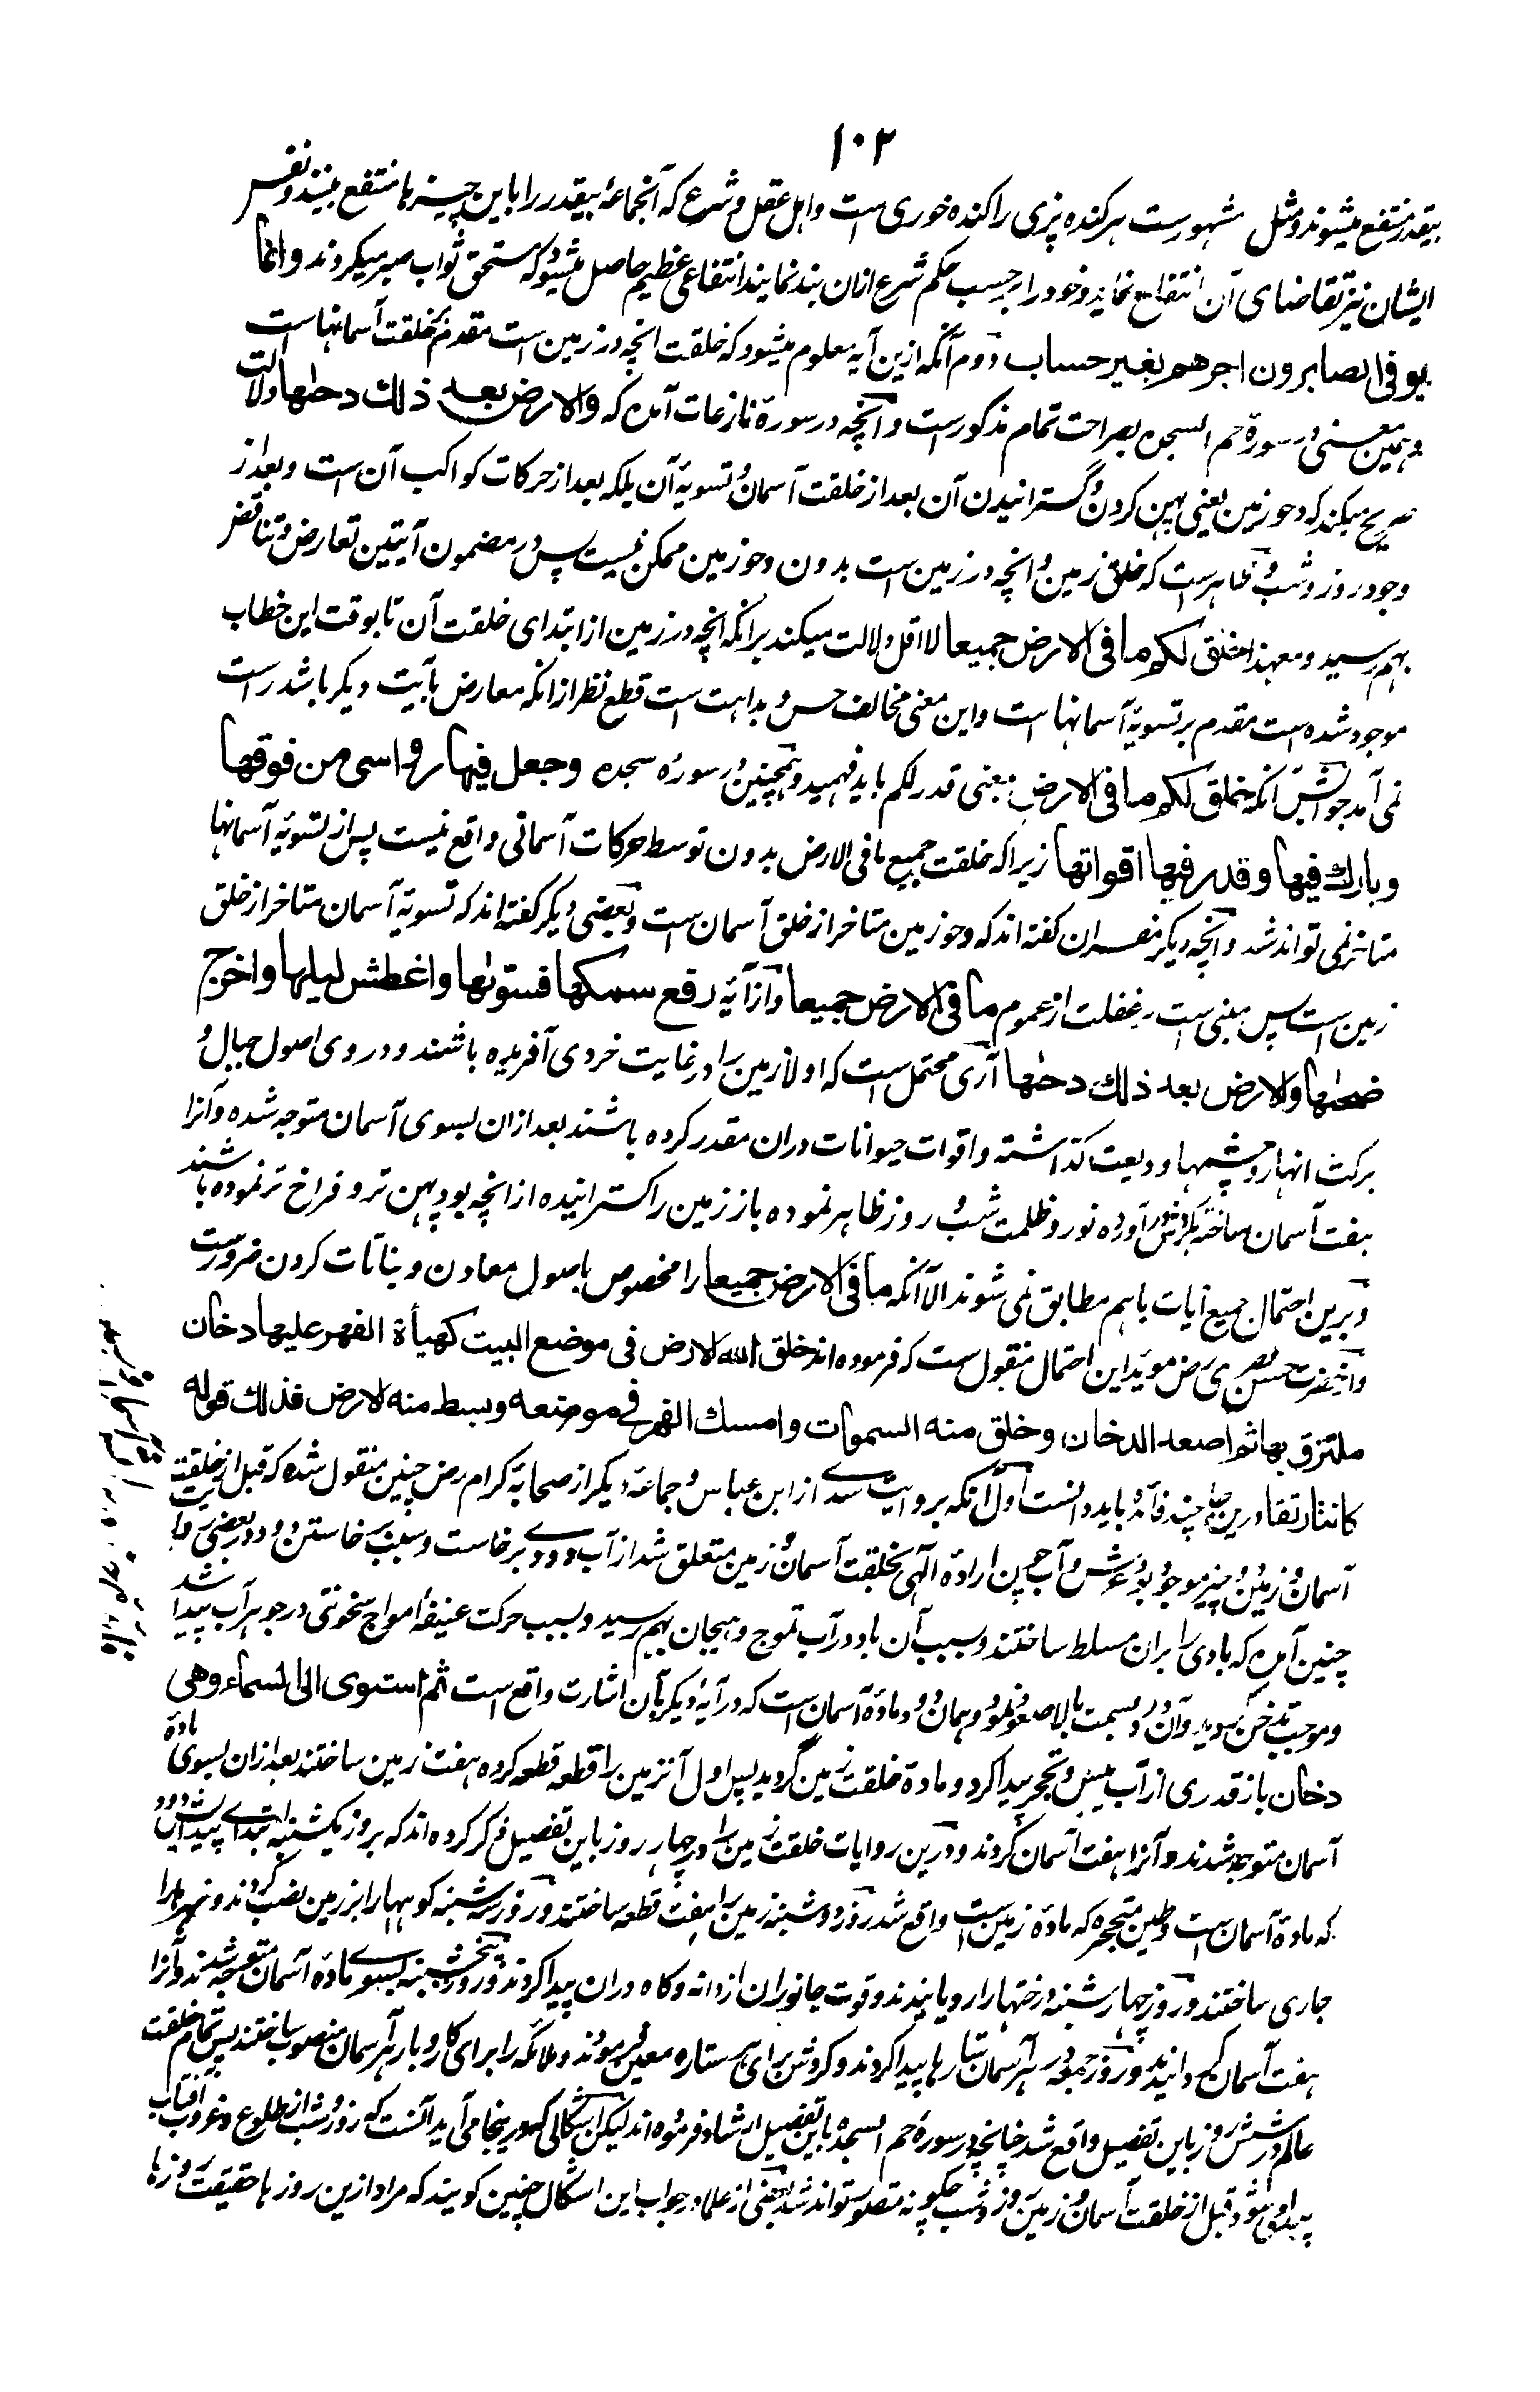 ۱۰۲
بیقدر منتفع میشوند و مثل مشهورست هر کنده پزی را کنده خوری است و اهل عقل و شرع که آنجماعۀ بیقدر را باین چیزها منتفع بینند و نفس
ایشان نیز تقاضای آن انتفاع نماید و خود را بحسب حکم شرع ازان بند نمایند انتفاعی عظیم حاصل میشود که مستحق ثواب صبر میکردند و انما
یوفی الصابرون اجرهم بغیر حساب دوم آنکه ازین آیه معلوم میشود که خلقت انچه در زمین است مقدم بر خلقت آسمانها است
و همین معنی در سورۀ حم السجده بصراحت تمام مذکور است و آنچه در سورۀ نازعات آمده که والارض بعد ذلك دحٰها دلالت
صریح میکند که دحو زمین یعنی پهن کردن و گسترانیدن آن بعد از خلقت آسمان و تسویۀ آن بلکه بعد از حرکات کواکب آن است و بعد از
وجود روز و شب و ظاهر است که خلق زمین و انچه در زمین است بدون دحو زمین ممکن نیست پس در مضمون آیتین تعارض و تناقض
بهم رسید و معهذا خلق لکم ما فی الارض جمیعا لا اقل دلالت میکند برانکه انچه در زمین از ابتدای خلقت آن تا بوقت این خطاب
موجود شده است مقدم بر تسویۀ آسمانها است و این معنی مخالف حس و بداهت است قطع نظر ازانکه معارض بآیت دیگر باشد راست
نمی آمد جوابش آنکه خلق لکم ما فی الارض بمعنی قدر لکم باید فهمید و همچنین در سورۀ سجده وجعل فیها رواسی من فوقها
وبارك فیها وقدر فیها اقواتها زیرا که خلقت جمیع ما فی الارض بدون توسط حرکات آسمانی واقع نیست پس از تسویۀ آسمانها
متاخر نمی تواند شد و آنچه دیگر مفسران گفته اند که دحو زمین متاخر از خلق آسمان است و بعضی دیگر گفته اند که تسویۀ آسمان متاخر از خلق
زمین است پس مبنی است بر غفلت از عموم ما فی الارض جمیعا و از آیۀ رفع سمکها فسوّٰها واغطش لیلها واخرج
ضحٰها والارض بعد ذلك دحٰها آری محتمل است که اولا زمین را در غایت خردی آفریده باشند و در وی اصول جبال و
برکت انهار و چشمها ودیعت گذاشته و اقوات حیوانات دران مقدر کرده باشند بعد ازان بسوی آسمان متوجه شده و آنرا
هفت آسمان ساخته بگردش در آورده نور و ظلمت شب و روز ظاهر نموده باز زمین را گسترانیده از انچه بود پهن تر و فراخ تر نموده باشند
و برین احتمال جمیع آیات باهم مطابق نمی شوند الا آنکه ما فی الارض جمیعا را مخصوص باصول معادن و نباتات کردن ضرورست
و از حضرت حسن بصری رض موید این احتمال منقول است که فرموده اند خلق الله الارض فی موضع البیت کهیأة الفهر علیها دخان
ملتزق بها ثم اصعد الدخان وخلق منه السموات وامسك الفهر فی موضعه وبسط منه الارض فذلك قوله
کانتا رتقا درین جا چند فائده باید دانست اول آنکه بروایت سدی از ابن عباس و جماعۀ دیگر از صحابۀ کرام رض چنین منقول شده که قبل از خلقت
آسمان و زمین دو چیز موجود بود عرش و آب چون ارادۀ الٰهی بخلقت آسمان و زمین متعلق شد از آب دودی برخاست و سبب برخاستن دود در بعضی روایات
چنین آمده که بادی را بران مسلط ساختند و بسبب آن باد در آب تموج و هیجان بهم رسید و بسبب حرکت عنیفه امواج سخونتی در جوهر آب پیدا شد
و موجب تدخن گردید و آن دود بسمت بالا صعود نمود و همان دود مادۀ آسمان است که در آیۀ دیگر بآن اشارت واقع است ثم استوی الی السماء وهی
دخان باز قدری از آب یبس و تحجر پیدا کرد و مادۀ خلقت زمین گردید پس اول آنزمین را قطعه قطعه کرده هفت زمین ساختند بعد ازان بسوی مادۀ
آسمان متوجه شدند و آنرا هفت آسمان کردند و درین روایات خلقت زمین را در چهار روز باین تفصیل ذکر کرده اند که بروز یکشنبه ابتدای پیدایش دود
که مادۀ آسمان است و طین متحجره که مادۀ زمین است واقع شد روز دوشنبه زمین را هفت قطعه ساختند و روز سه شنبه کوهها را بر زمین نصب کردند و نهرها را
جاری ساختند و روز چهارشنبه درختها را رویانیدند و قوت جانوران از دانه و کاه دران پیدا کردند و روز پنجشنبه بسوی مادۀ آسمان متوجه شدند و آنرا
هفت آسمان گردانیدند و روز جمعه در هر آسمان ستارها پیدا کردند و گردش برای هر ستاره معین فرمودند و ملائکه را برای کاروبار هر آسمان منصوب ساختند پس تمام خلقت
عالم در شش روز باین تفصیل واقع شد چنانچه در سورۀ حم السجده باین تفصیل ارشاد فرموده اند لیکن اشکالی که درینجا می آید آنست که روز و شب از طلوع و غروب آفتاب
پیدا میشود قبل از خلقت آسمان و زمین روز و شب چگونه متصور تواند شد بعضی از علما در جواب این اشکال چنین گویند که مراد ازین روزها حقیقت روزها